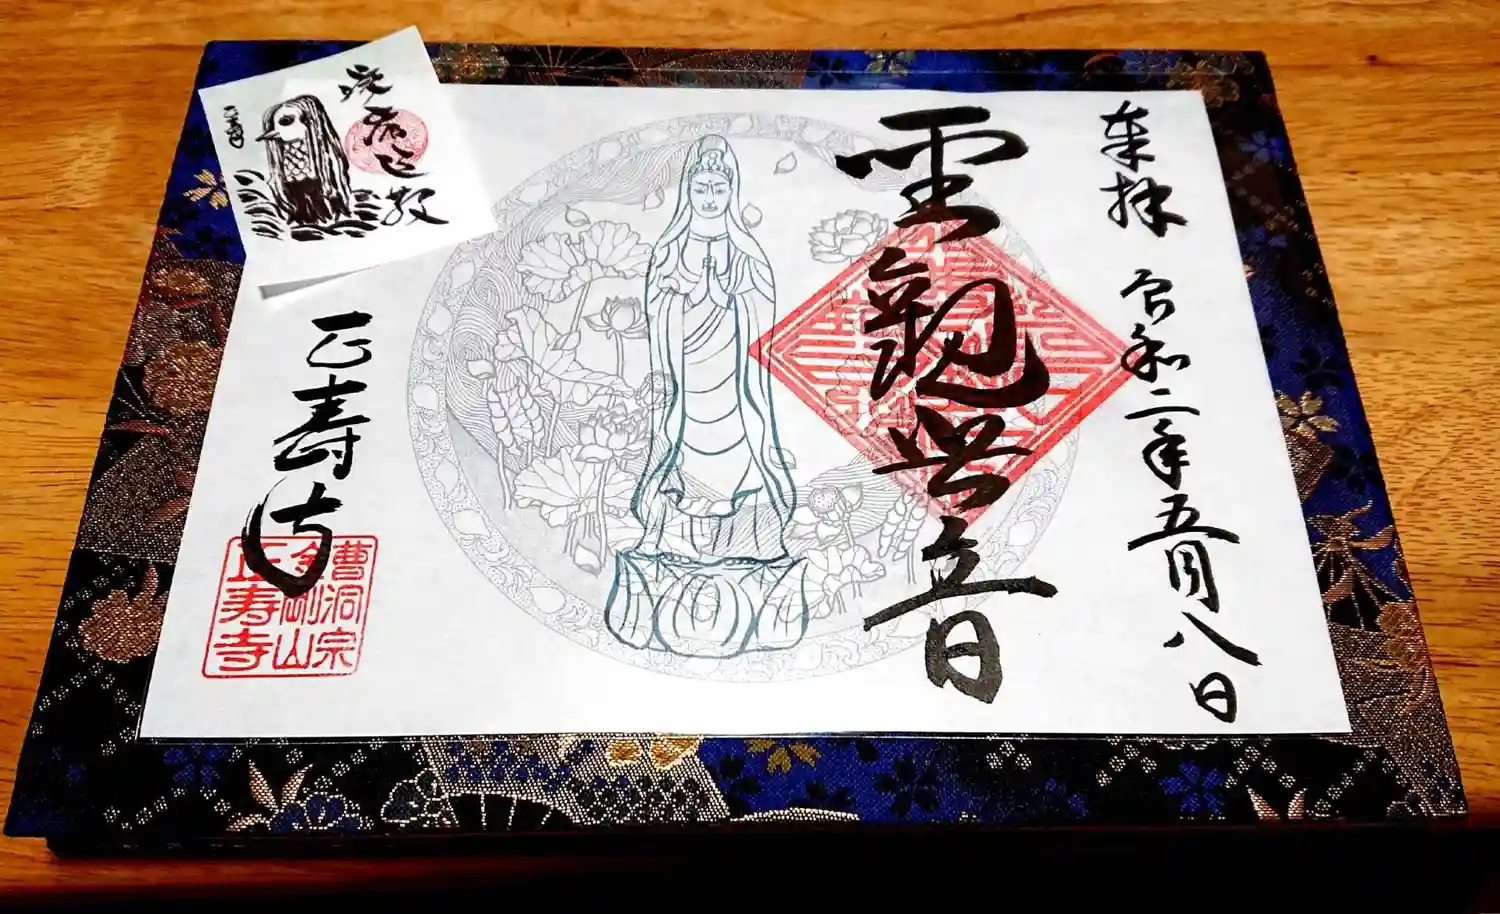 奉拝 令和二年五月八日
聖観世音
正寿寺
曹洞宗
金剛山
正寿寺
疫病退散